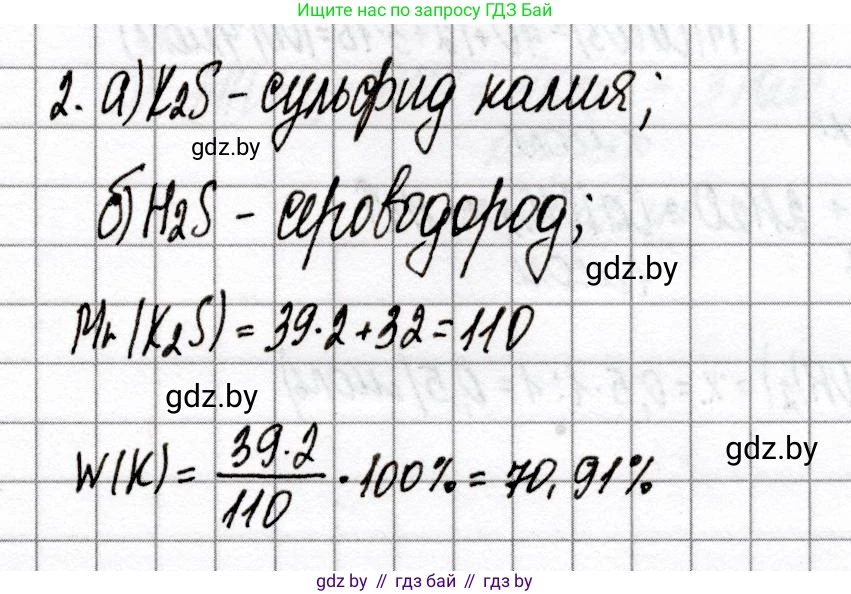 Ищите нас по запросу ГДЗ Бай
2. а) K₂S - сульфид калия;
gdz.by
б) H₂S - сероводород;
gdz.by
Mr(K₂S) = 39·2+32=110
gdz.by
gdz.by
W(K) = 39·2/110 · 100% = 70,91%
gdz by // гдз бай // gdz by